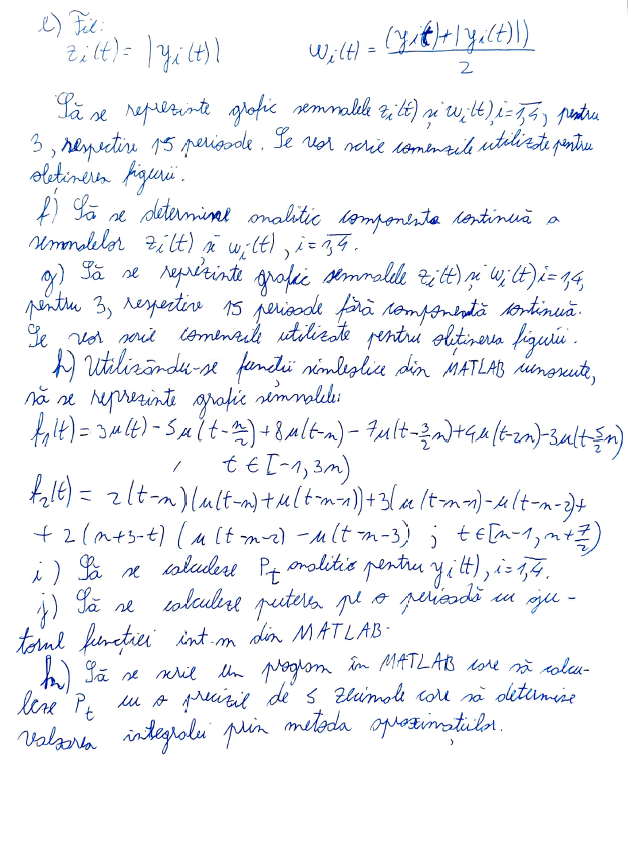 e) Fie:
z_i(t) = |y_i(t)|    w_i(t) = (y_i(t)+|y_i(t)|)/2
Să se reprezinte grafic semnalele z_i(t) și w_i(t), i=1,4, pentru
3, respectiv 15 perioade. Se vor scrie comenzile utilizate pentru
obținerea figurii.
f) Să se determine analitic componenta continuă a
semnalelor z_i(t) și w_i(t), i=1,4.
g) Să se reprezinte grafic semnalele z_i(t) și w_i(t) i=1,4,
pentru 3, respectiv 15 perioade fără componentă continuă.
Se vor scrie comenzile utilizate pentru obținerea figurii.
h) Utilizându-se funcții simbolice din MATLAB cunoscute,
să se reprezinte grafic semnalele:
f_1(t) = 3μ(t) - 5μ(t-n/2) + 8μ(t-n) - 7μ(t-3/2n) + 4μ(t-2n) - 3μ(t-5/2n)
, t ∈ [-1, 3n)
f_2(t) = 2(t-n)(μ(t-n)+μ(t-n-1)) + 3(μ(t-n-1)-μ(t-n-2)+
+ 2(n+3-t)(μ(t-n-2) - μ(t-n-3) ; t∈[n-1, n+7/2)
i) Să se calculeze P_t analitic pentru y_i(t), i=1,4.
j) Să se calculeze puterea pe o perioadă cu aju-
torul funcției int.m din MATLAB.
k) Să se scrie un program în MATLAB care să calcu-
leze P_t cu o precizie de 5 zecimale care să determine
valoarea integralei prin metoda aproximațiilor.